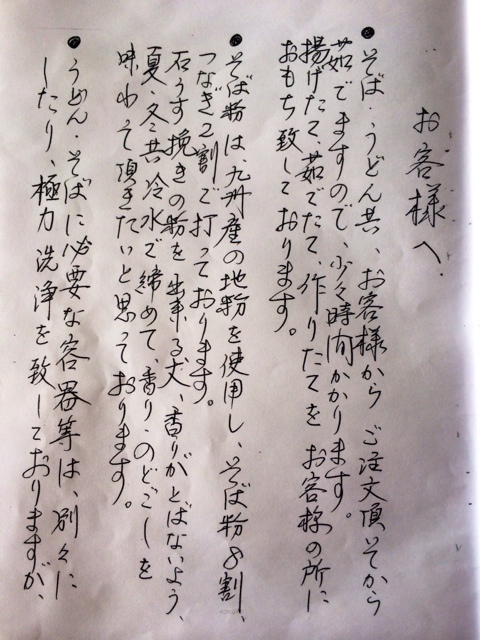 お客様へ.
● そば・うどん共、お客様から ご注文頂いてから
茹でますので、少々時間かかります。
揚げたて、茹でたて、作りたてを お客様の所に
おもち致しております。
● そば粉は、九州産の地粉を使用し、そば粉8割、
つなぎ2割で打っております。
石うす挽きの粉を 出来る丈、香りがとばないよう、
夏、冬共冷水で締めて、香り、のどごしを
味わって頂きたいと思っております。
● うどん・そばに必要な容器等は、別々に
したり、極力洗浄を致しておりますが、